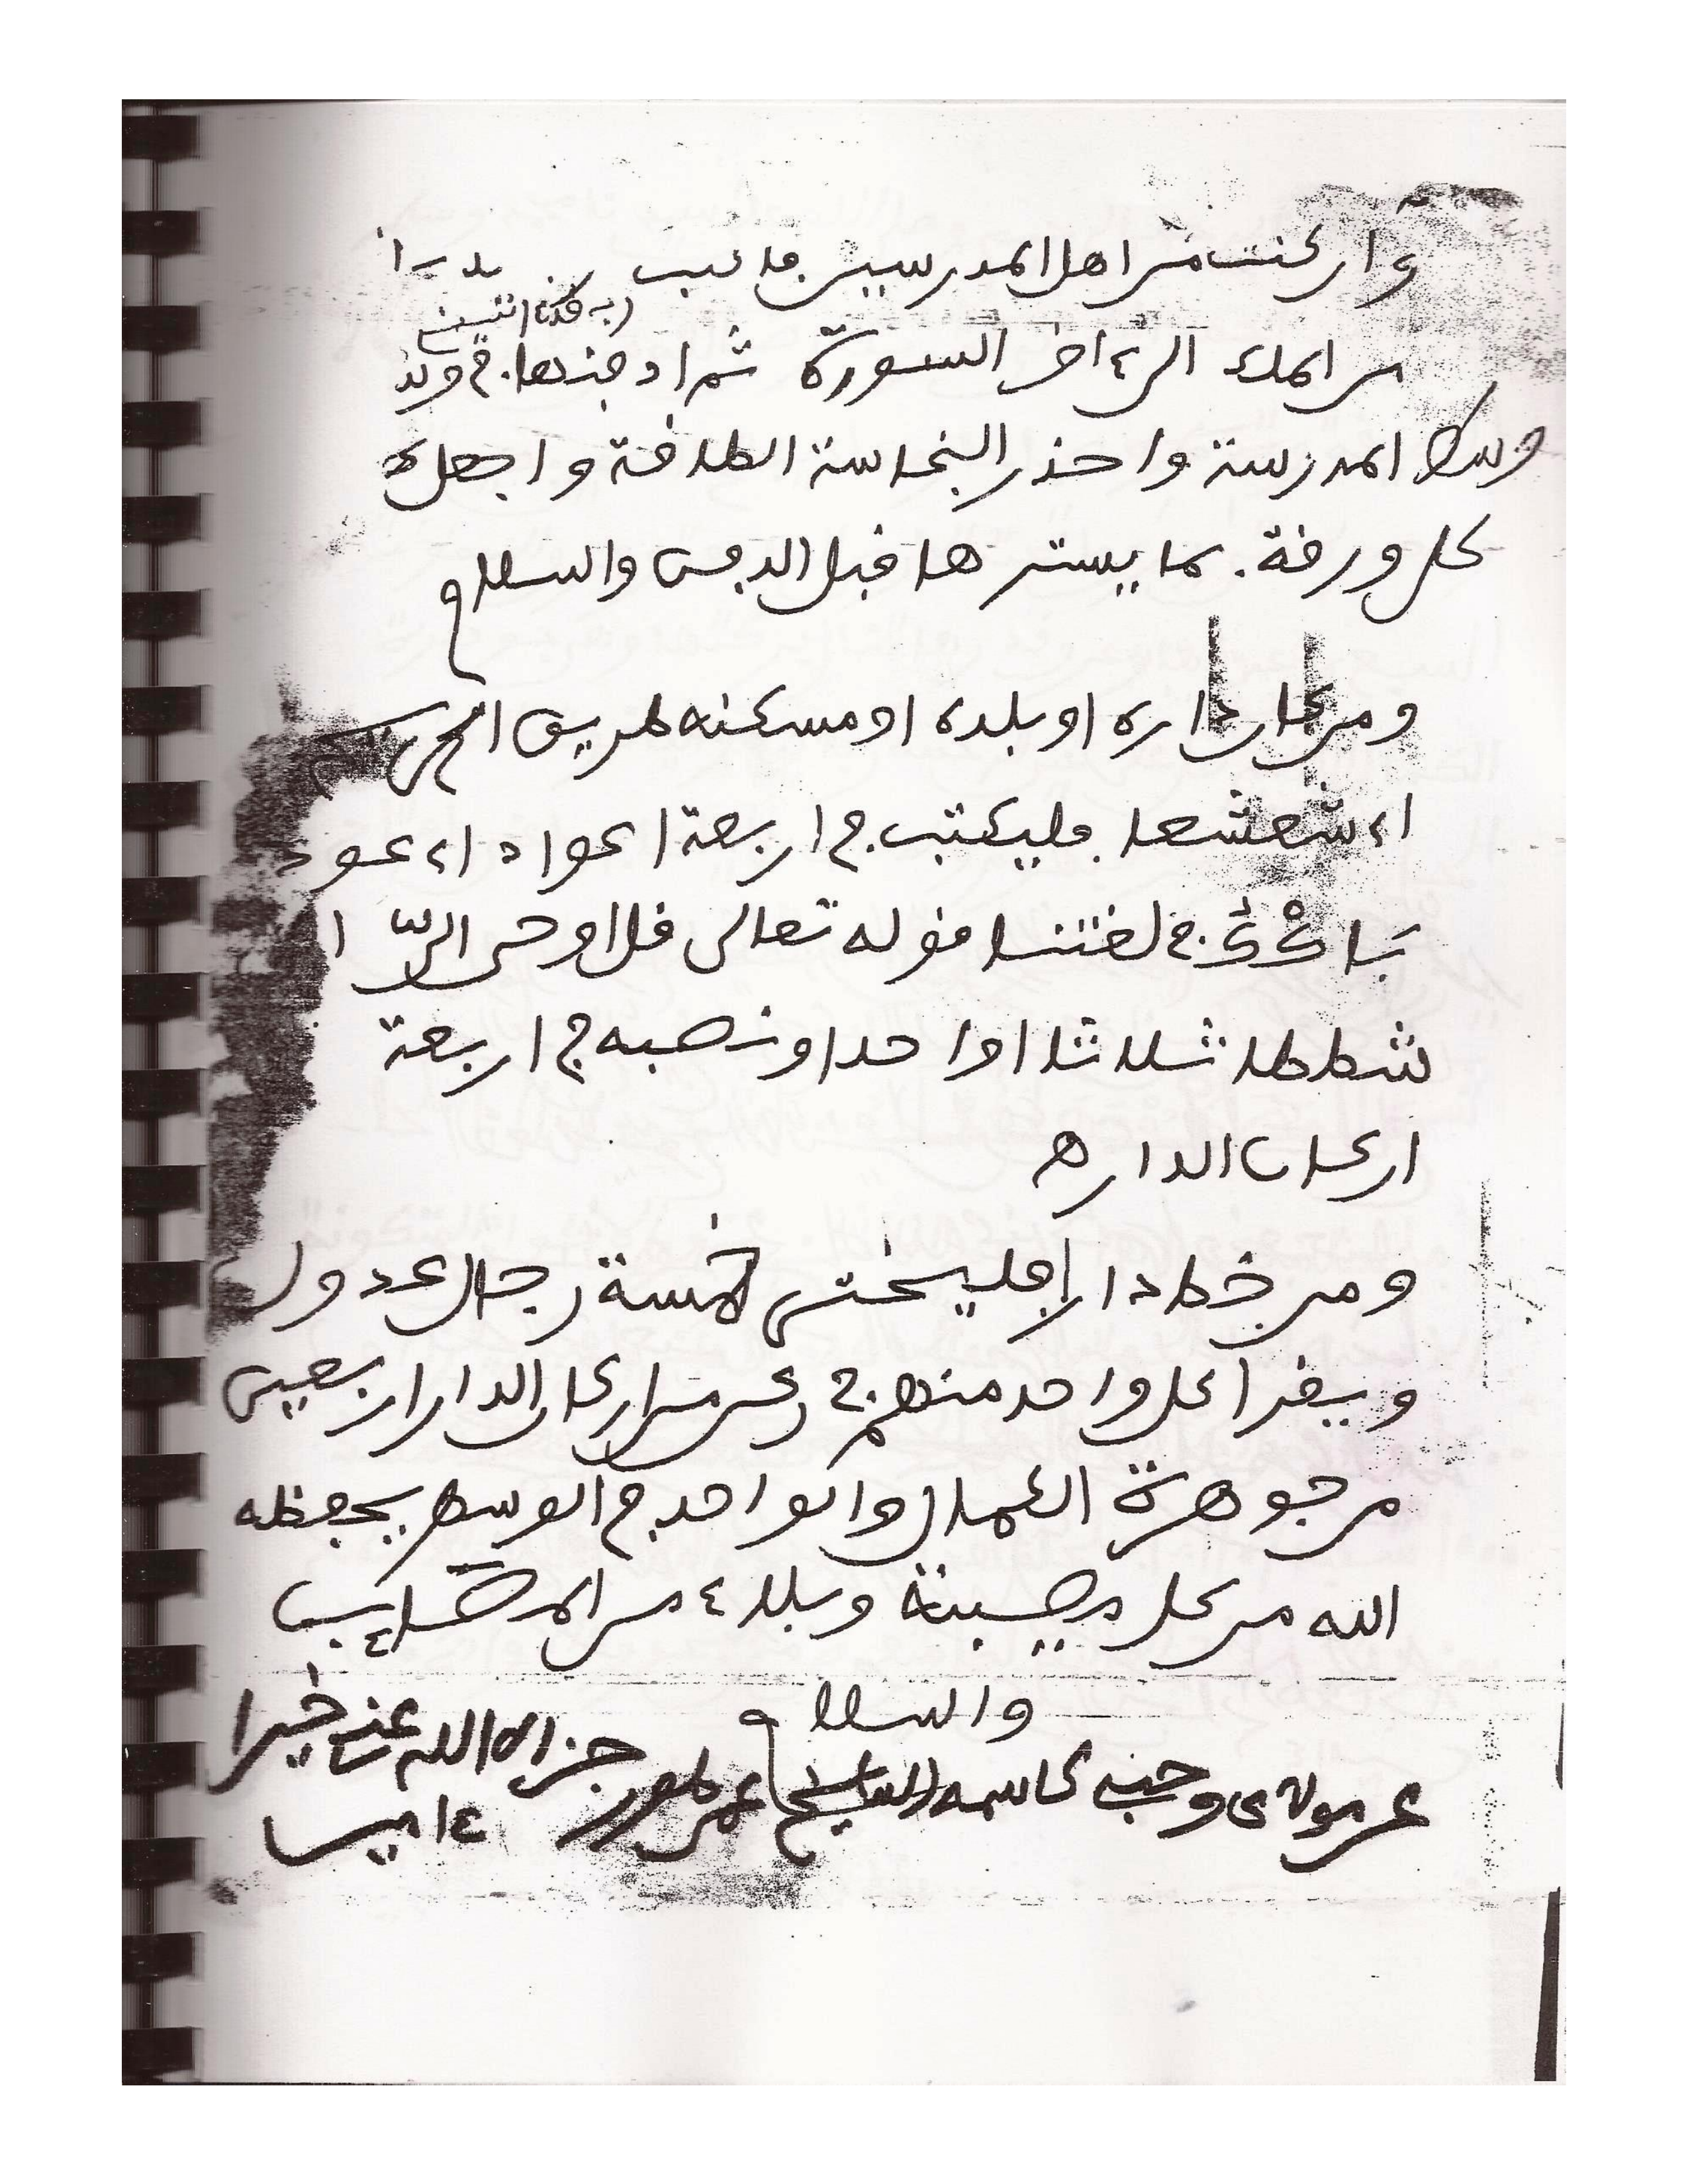 وان كنت من اهل المدرسين فاكتب
ورقة اثنين
من الملك الى ءاخر السورة ثم ادفنها في
وسط المدرسة واحذر النجاسة الطافة واجعل
كل ورقة بما يسترها قبل الدفن والسلام
ومن كان داره او بلده او مسكنه طريق الجن
اء شعشعا فليكتب في اربعة اعواد اء عود
في لغتنا قوله تعالى قل اوحى الىّ ا
شططا ثلاثا او احدا ونصبه في اربعة
اركان الدار ه
ومن خط دارا فليختر خمسة رجال عدول
ويقرا كل واحد منهم في ركن من اركان الدار اربعين
من جوهرة الكمال والواحد في الوسط يحفظه
الله من كل مصيبة وبلاء من المصايب
والسلام
عن مولاى وحبى كاسمه الشيخ عمر جزاه الله عنا خيرا
ءامين